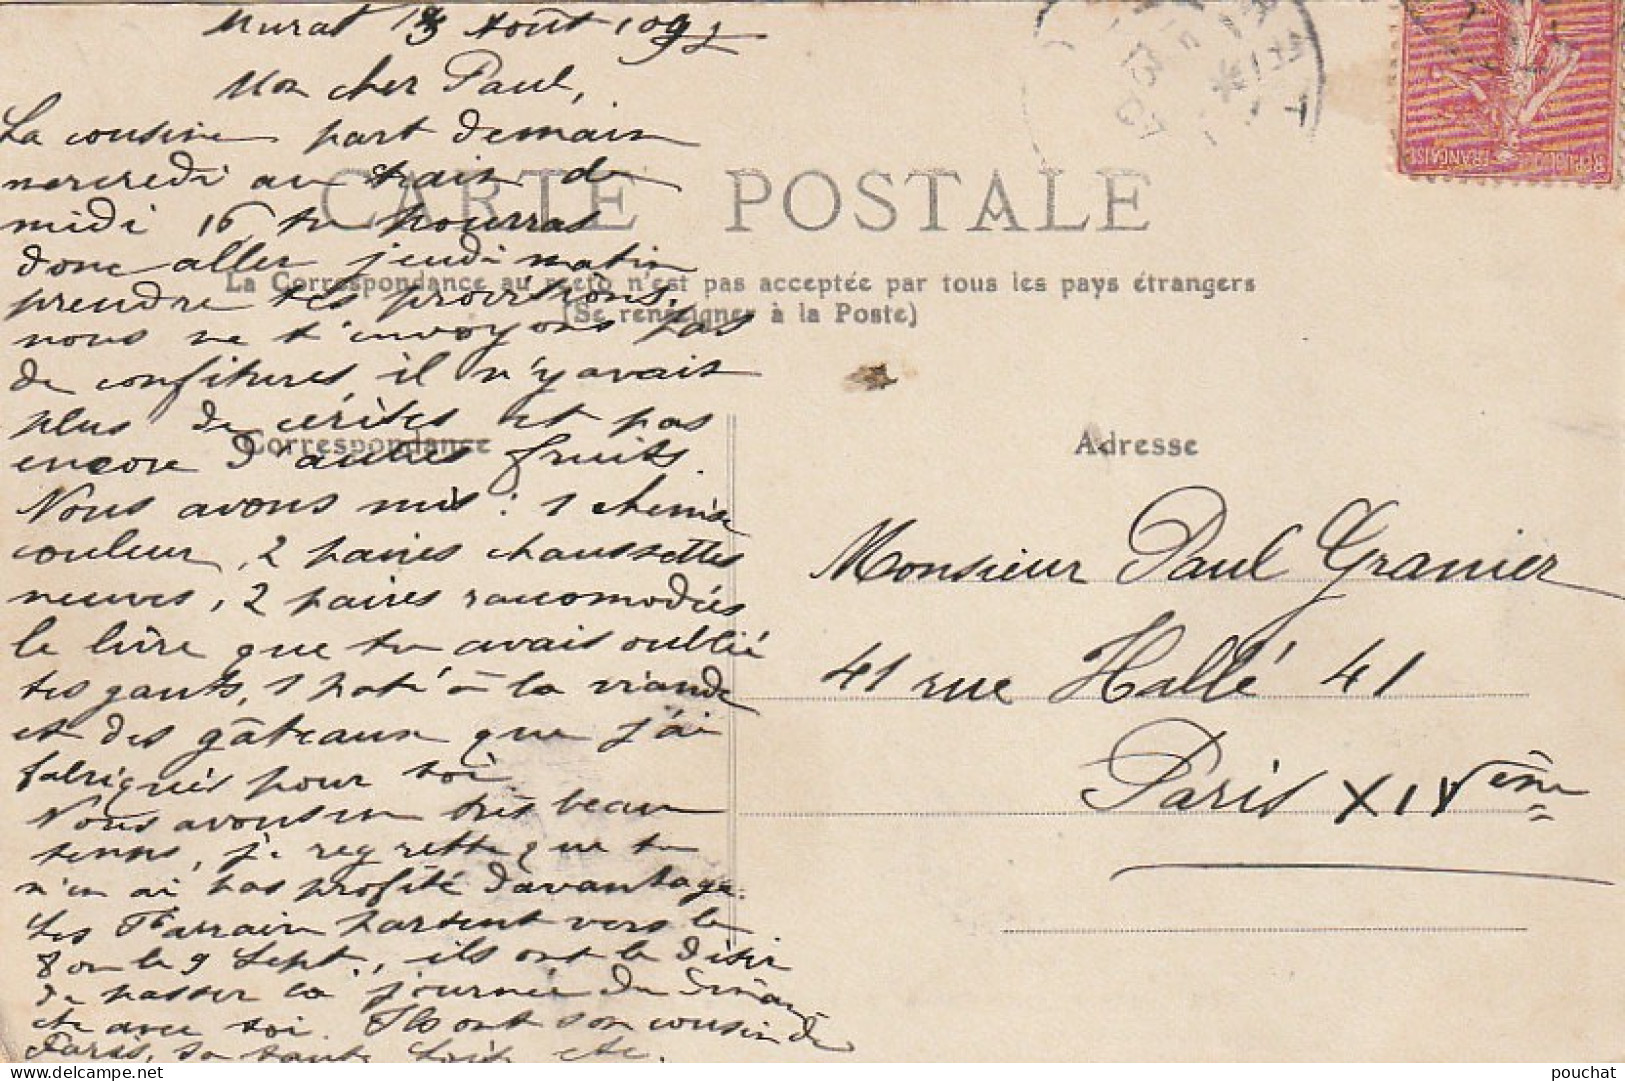 Murat 13 Août 1907
Mon cher Paul,
La cousine part demain
mercredi au train de
midi 16 tu pourras
donc aller jeudi matin
prendre tes provisions.
nous ne t'envoyons pas
de confitures, il n'y avait
plus de cérises et pas
encore d'autres fruits.
Nous avons mis : 1 chemise
couleur, 2 paires chaussettes
neuves, 2 paires raccomodées
le livre que tu avais oublié
tes gants, 1 paté à la viande
et des gâteaux que j'ai
fabriqués pour toi.
Nous avons un très beau
temps, je regrette que tu
n'en ai pas profité davantage.
Les Tharrain partent vers le
8 ou le 9 Sept., ils ont le désir
de passer la journée du diman
che avec toi. Ils ont son cousin de
Paris, sa tante etc.
CARTE POSTALE
La Correspondance au recto n'est pas acceptée par tous les pays étrangers
(Se renseigner à la Poste)
Correspondance
Adresse
Monsieur Paul Granier
41 rue Hallé 41
Paris XIVème
REPUBLIQUE FRANÇAISE
13
07
pouchat